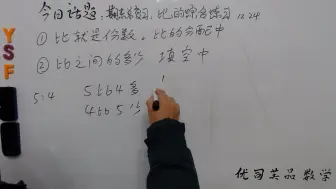 今日话题:期末总复习.比的综合练习 12.24
① 比就是份数。比的分配中
② 比之间的多少 填空中
5:4 5比4多
4比5少
YSF
优司英品数学